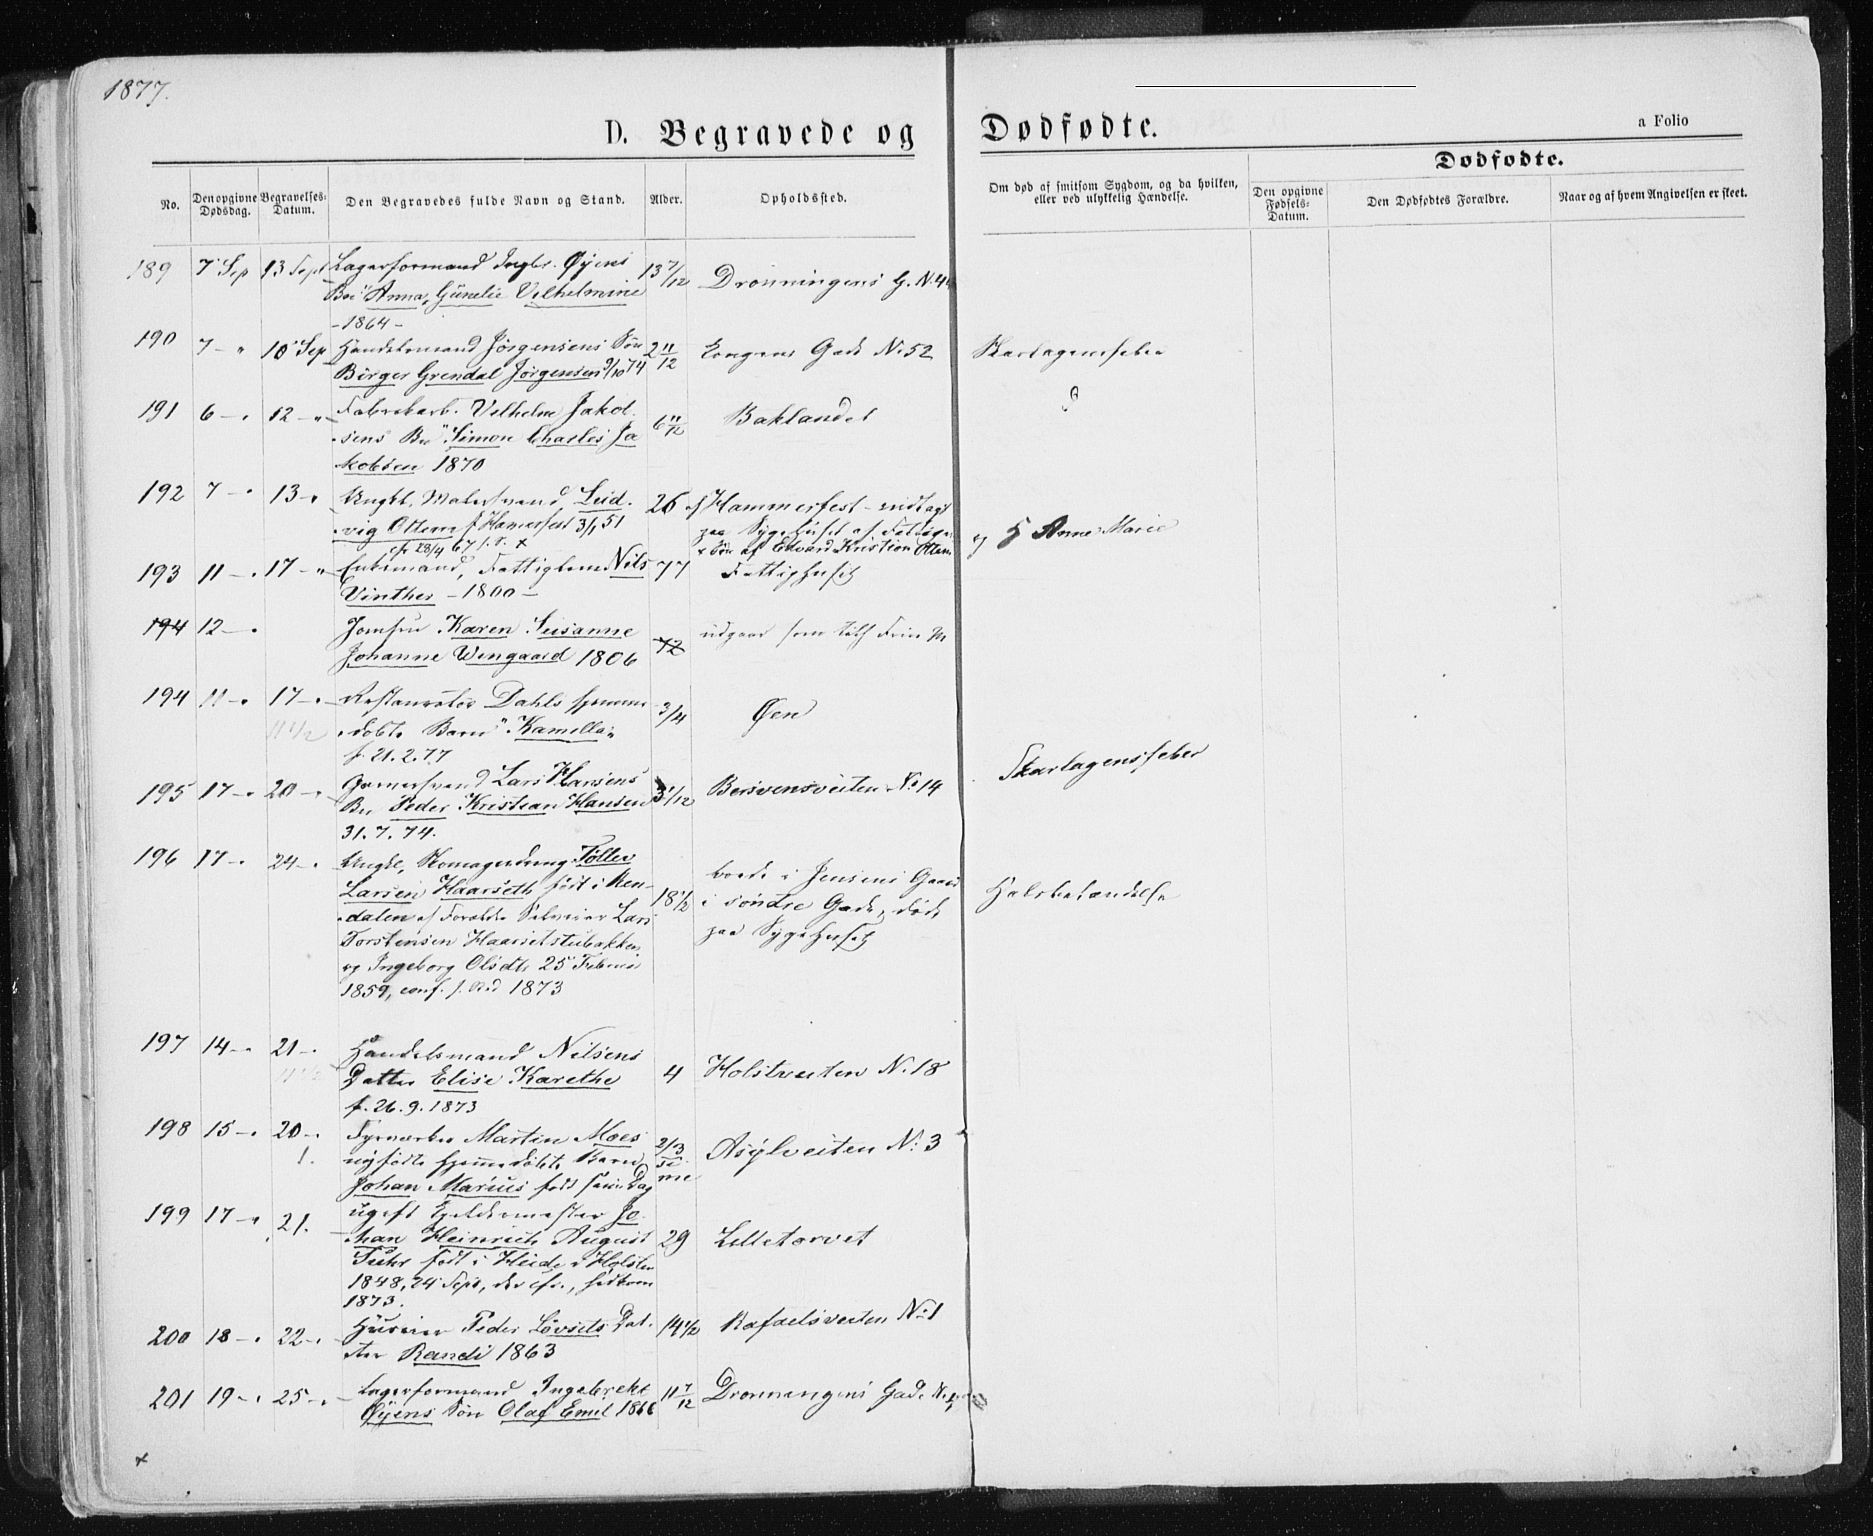 1877.
D. Begravede og Dødfødte.
a Folio
Dødfødte.
No. Den opgivne Dødsdag. Begravelses-Datum. Den Begravedes fulde Navn og Stand. Alder. Opholdssted. Om død af smitsom Sygdom, og da hvilken, eller ved ulykkelig Hændelse. Den opgivne Fødsels-Datum. Den Dødfødtes Forældre. Naar og af hvem Angivelsen er skeet.
189 7 Sep 13 Sept Lagerformand Ingbr. Øyens 13 7/12 Dronningens G. N. 4
Bn Anna Gunelie Vilhelmine
- 1864 -
190 7 - " 10 Sep Handelsmand Jörgensens Sön 2 11/12 Kongens Gade No 52 Skarlagensfeber
Birger Grendal Jörgensen 9/10 74
191 6 - " 12 - " Fabrikarb. Vilhelm Jakob- 6 11/12 Baklandet
sens Bn Simon Charles Ja
kobsen 1870
192 7 - " 13 - " Ungkl. Malersvend Lud- 26 Hammerfest - indlagt
vig Ottem f. Hamerfest 3/1 51 paa Sygehuset af
cfr 28/4 67 x x Sön af Edvard Kristian Ottem og Anne Marie
193 11 - " 17 - " Enkemand, Fattiglem Nils 77 Fattighuset
Vinther - 1800 -
194 12 - " Jomfru Karen Susanne 72 udgaar som
Johanne Wingaard 1806
194 11 - " 17 - " Restauratör Dahls hjemme- 3/4 Øen
11 1/2 döbte Barn "Kamilla"
f. 21.2.77
195 17 - " 20 - " Garversvend Lars Hansens 3 1/12 Bersvensveiten No 14 Skarlagensfeber
Bn Peder Kristian Hansen
31.7.74.
196 17 - " 24 - " Ungkl, Tollev
Larsen Haarseth födt i Ren- 18 1/2 boede i Jensens Gaard Halsbetændelse
dalen af Forældre Selveier Lars i söndre Gade, döde
Torstensen Haarsetstubakken paa Sygehuset
og Ingeborg Olsdtr 25 Februar
1859, conf. 1873
197 14 - " 21 - " Handelsmand Nilsens
Datter Elise Karethe 4 Holstveiten N. 18
f. 26.9.1873
198 15 - " 20 - " Fyrværker Martin Moes 2/3 Asylveiten N: 3
nyfödte hjemmedöbte Barn Ti-
Johan Marius födt samme Dag me
199 17 - " 21. ugift Kjeldermester Jo-
han Heinrich August 29 Lilletorvet
Suhr födt i Heide i Holsten
1848, 24 Sept,
1873.
200 18 - " 22 - " Husmr Peder Lövsets Dat- 14 1/2 Rafaelsveiten No 1
ter Randi 1863
201 19 - " 25 - " Lagerformand Ingebrekt 11 7/12 Dronningens Gade No
Øyens Sön Olaf Emil 1866
x